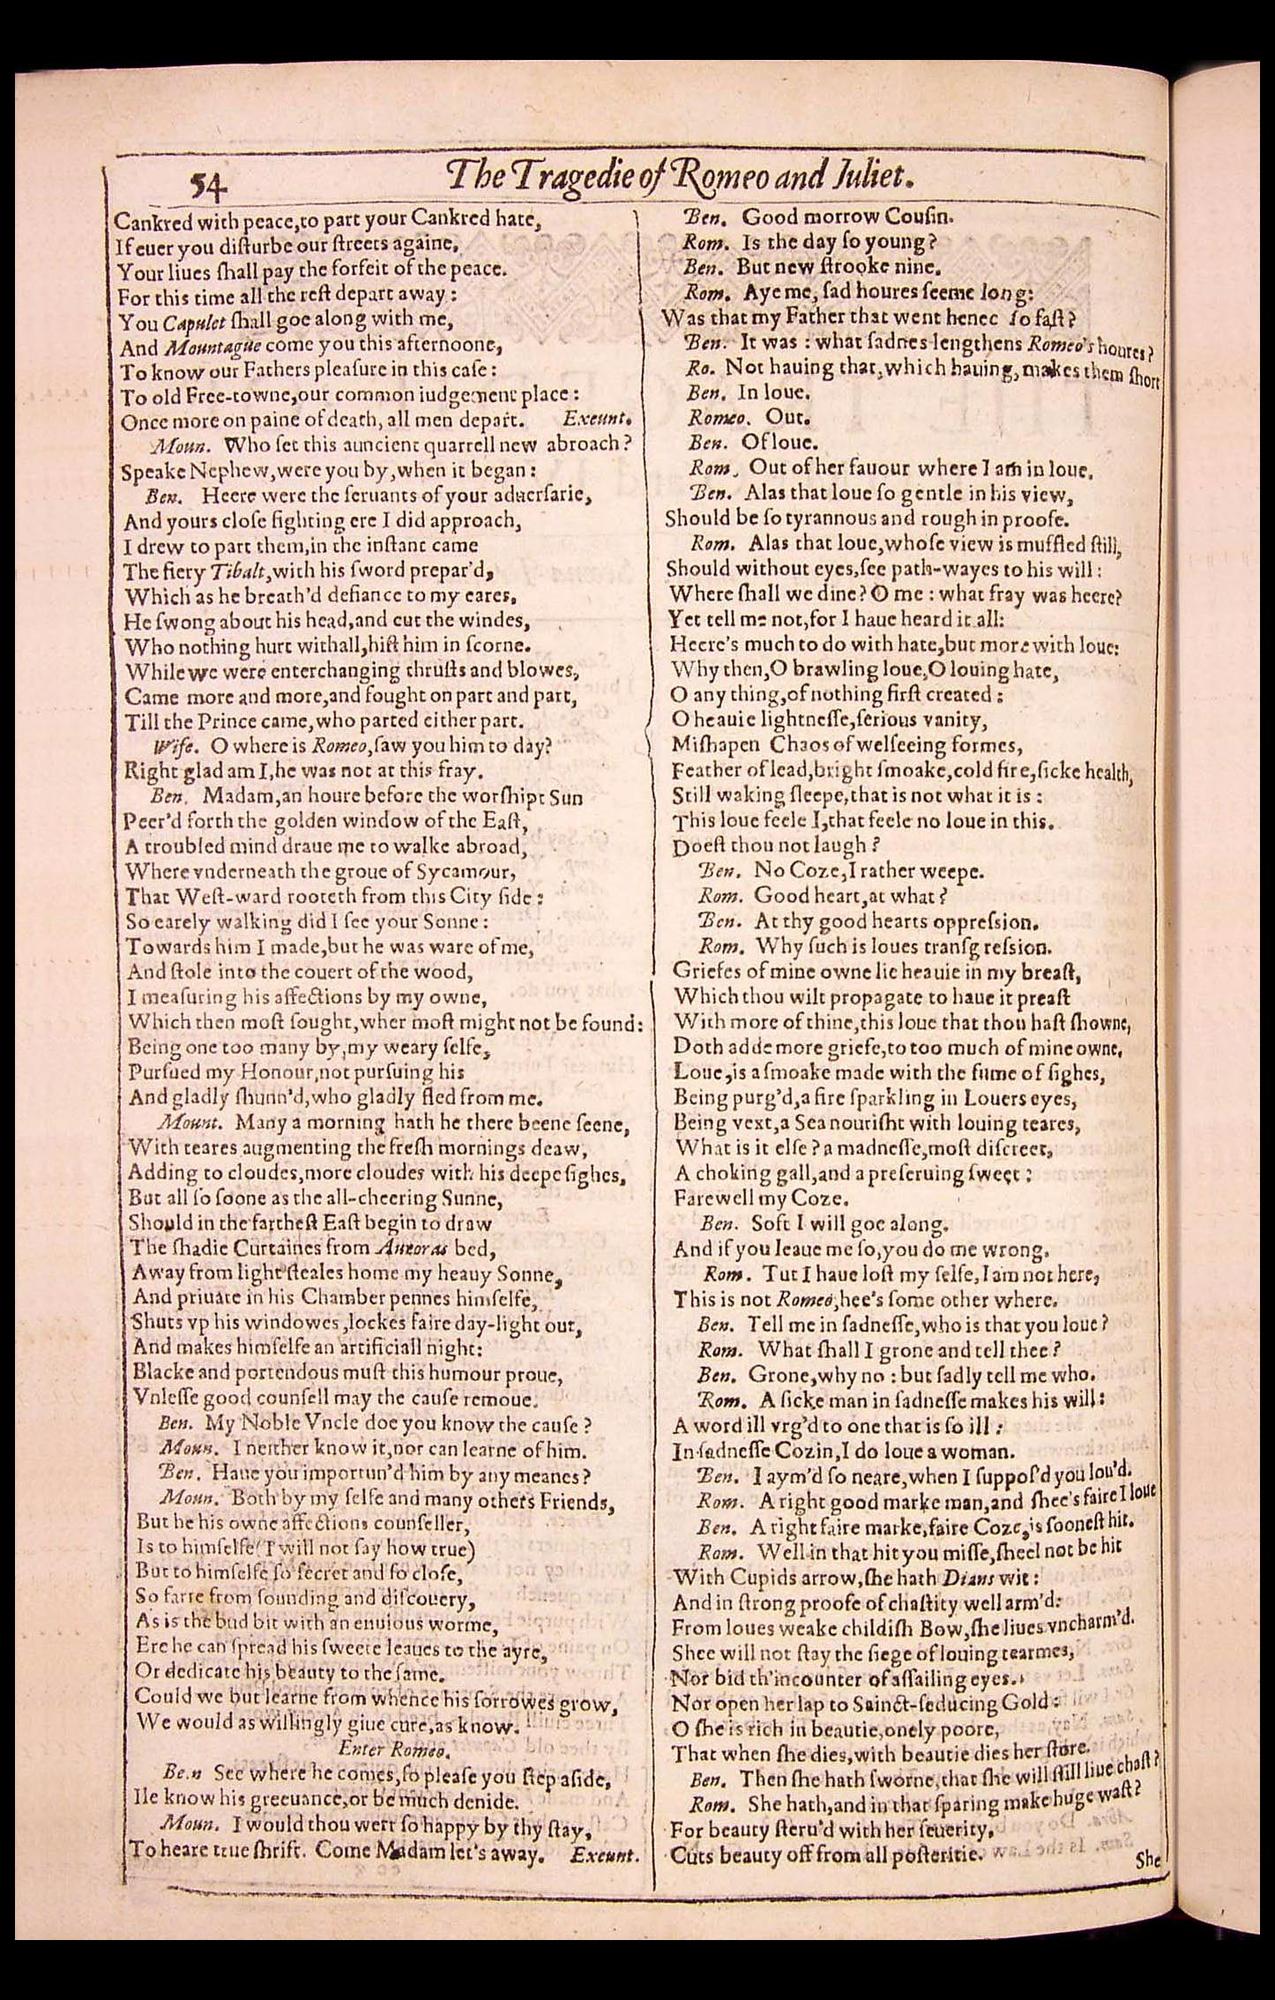 54
The Tragedie of Romeo and Juliet.
Cankred with peace,to part your Cankred hate,
If euer you disturbe our streets againe,
Your liues shall pay the forfeit of the peace.
For this time all the rest depart away:
You Capulet shall goe along with me,
And Mountague come you this afternoone,
To know our Fathers pleasure in this case:
To old Free-towne,our common iudgement place:
Once more on paine of death, all men depart. Exeunt.
Moun. Who set this auncient quarrell new abroach?
Speake Nephew,were you by,when it began:
Ben. Heere were the seruants of your aduersarie,
And yours close fighting ere I did approach,
I drew to part them,in the instant came
The fiery Tibalt,with his sword prepar'd,
Which as he breath'd defiance to my eares,
He swong about his head,and cut the windes,
Who nothing hurt withall,hist him in scorne.
While we were enterchanging thrusts and blowes,
Came more and more,and fought on part and part,
Till the Prince came,who parted either part.
Wife. O where is Romeo,saw you him to day?
Right glad am I,he was not at this fray.
Ben. Madam,an houre before the worshipt Sun
Peer'd forth the golden window of the East,
A troubled mind draue me to walke abroad,
Where vnderneath the groue of Sycamour,
That West-ward rooteth from this City side:
So earely walking did I see your Sonne:
Towards him I made,but he was ware of me,
And stole into the couert of the wood,
I measuring his affections by my owne,
Which then most sought,wher most might not be found:
Being one too many by,my weary selfe,
Pursued my Honour,not pursuing his
And gladly shunn'd,who gladly fled from me.
Mount. Many a morning hath he there beene seene,
With teares augmenting the fresh mornings deaw,
Adding to cloudes,more cloudes with his deepe sighes,
But all so soone as the all-cheering Sunne,
Should in the farthest East begin to draw
The shadie Curtaines from Auroras bed,
Away from light steales home my heauy Sonne,
And priuate in his Chamber pennes himselfe,
Shuts vp his windowes,lockes faire day-light out,
And makes himselfe an artificiall night:
Blacke and portendous must this humour proue,
Vnlesse good counsell may the cause remoue.
Ben. My Noble Vncle doe you know the cause?
Moun. I neither know it,nor can learne of him.
Ben. Haue you importun'd him by any meanes?
Moun. Both by my selfe and many others Friends,
But he his owne affections counseller,
Is to himselfe(I will not say how true)
But to himselfe so secret and so close,
So farre from sounding and discouery,
As is the bud bit with an enuious worme,
Ere he can spread his sweete leaues to the ayre,
Or dedicate his beauty to the same.
Could we but learne from whence his sorrowes grow,
We would as willingly giue cure,as know.
Enter Romeo.
Be.n See where he comes,so please you step aside,
Ile know his greeuance,or be much denide.
Moun. I would thou wert so happy by thy stay,
To heare true shrift. Come Madam let's away. Exeunt.
Ben. Good morrow Cousin.
Rom. Is the day so young?
Ben. But new strooke nine.
Rom. Aye me, sad houres seeme long:
Was that my Father that went hence so fast?
Ben. It was : what sadnes lengthens Romeo's houres?
Ro. Not hauing that,which hauing, makes them short
Ben. In loue.
Romeo. Out.
Ben. Of loue.
Rom. Out of her fauour where I am in loue.
Ben. Alas that loue so gentle in his view,
Should be so tyrannous and rough in proofe.
Rom. Alas that loue,whose view is muffled still,
Should without eyes,see path-wayes to his will:
Where shall we dine? O me : what fray was heere?
Yet tell me not,for I haue heard it all:
Heere's much to do with hate,but more with loue:
Why then,O brawling loue,O louing hate,
O any thing,of nothing first created:
O heauie lightnesse,serious vanity,
Mishapen Chaos of welseeing formes,
Feather of lead,bright smoake,cold fire,sicke health,
Still waking sleepe,that is not what it is:
This loue feele I,that feele no loue in this.
Doest thou not laugh?
Ben. No Coze,I rather weepe.
Rom. Good heart,at what?
Ben. At thy good hearts oppression.
Rom. Why such is loues transgression.
Griefes of mine owne lie heauie in my breast,
Which thou wilt propagate to haue it preast
With more of thine,this loue that thou hast showne,
Doth adde more griefe,to too much of mine owne.
Loue,is a smoake made with the fume of sighes,
Being purg'd,a fire sparkling in Louers eyes,
Being vext,a Sea nourisht with louing teares,
What is it else? a madnesse,most discreet,
A choking gall,and a preseruing sweet:
Farewell my Coze.
Ben. Soft I will goe along.
And if you leaue me so,you do me wrong.
Rom. Tut I haue lost my selfe,I am not here,
This is not Romeo,hee's some other where.
Ben. Tell me in sadnesse,who is that you loue?
Rom. What shall I grone and tell thee?
Ben. Grone,why no : but sadly tell me who.
Rom. A sicke man in sadnesse makes his will:
A word ill vrg'd to one that is so ill:
In sadnesse Cozin,I do loue a woman.
Ben. I aym'd so neare,when I suppos'd you lou'd.
Rom. A right good marke man,and shee's faire I loue
Ben. A right faire marke,faire Coze,is soonest hit.
Rom. Well in that hit you misse,sheel not be hit
With Cupids arrow,she hath Dians wit:
And in strong proofe of chastity well arm'd:
From loues weake childish Bow,she liues vncharm'd.
Shee will not stay the siege of louing tearmes,
Nor bid th'incounter of assailing eyes.
Nor open her lap to Sainct-seducing Gold:
O she is rich in beautie,onely poore,
That when she dies,with beautie dies her store.
Ben. Then she hath sworne,that she will still liue chast?
Rom. She hath,and in that sparing make huge wast?
For beauty steru'd with her seuerity,
Cuts beauty off from all posteritie.
She